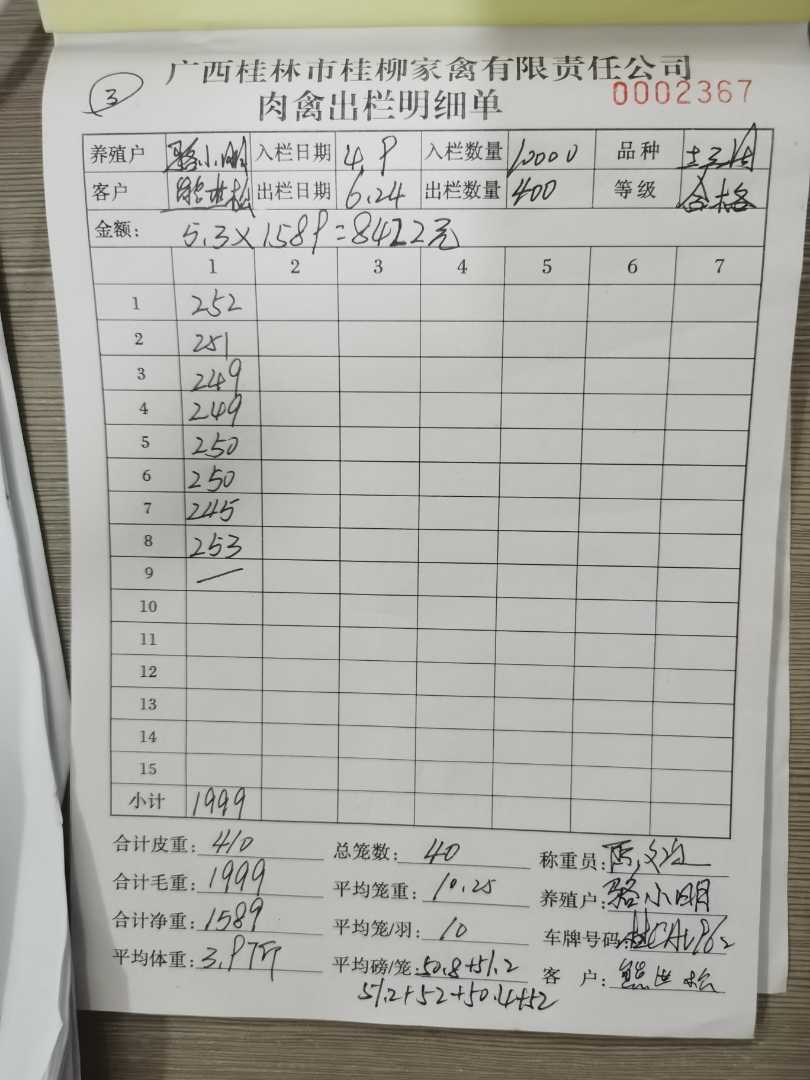 ③
广西桂林市桂柳家禽有限责任公司
肉禽出栏明细单 0002367
养殖户 骆小明 入栏日期 4.9 入栏数量 10000 品种
客户 熊世松 出栏日期 6.24 出栏数量 400 等级 合格
金额: 5.3×1589=8422元
1 2 3 4 5 6 7
1 252
2 251
3 249
4 249
5 250
6 250
7 245
8 253
9 —
10
11
12
13
14
15
小计 1999
合计皮重: 410 总笼数: 40 称重员:
合计毛重: 1999 平均笼重: 10.25 养殖户: 骆小明
合计净重: 1589 平均笼/羽: 10 车牌号码:
平均体重: 3.97斤 平均磅/笼: 50.8+51.2 客 户: 熊世松
51.2+52+50.4+52